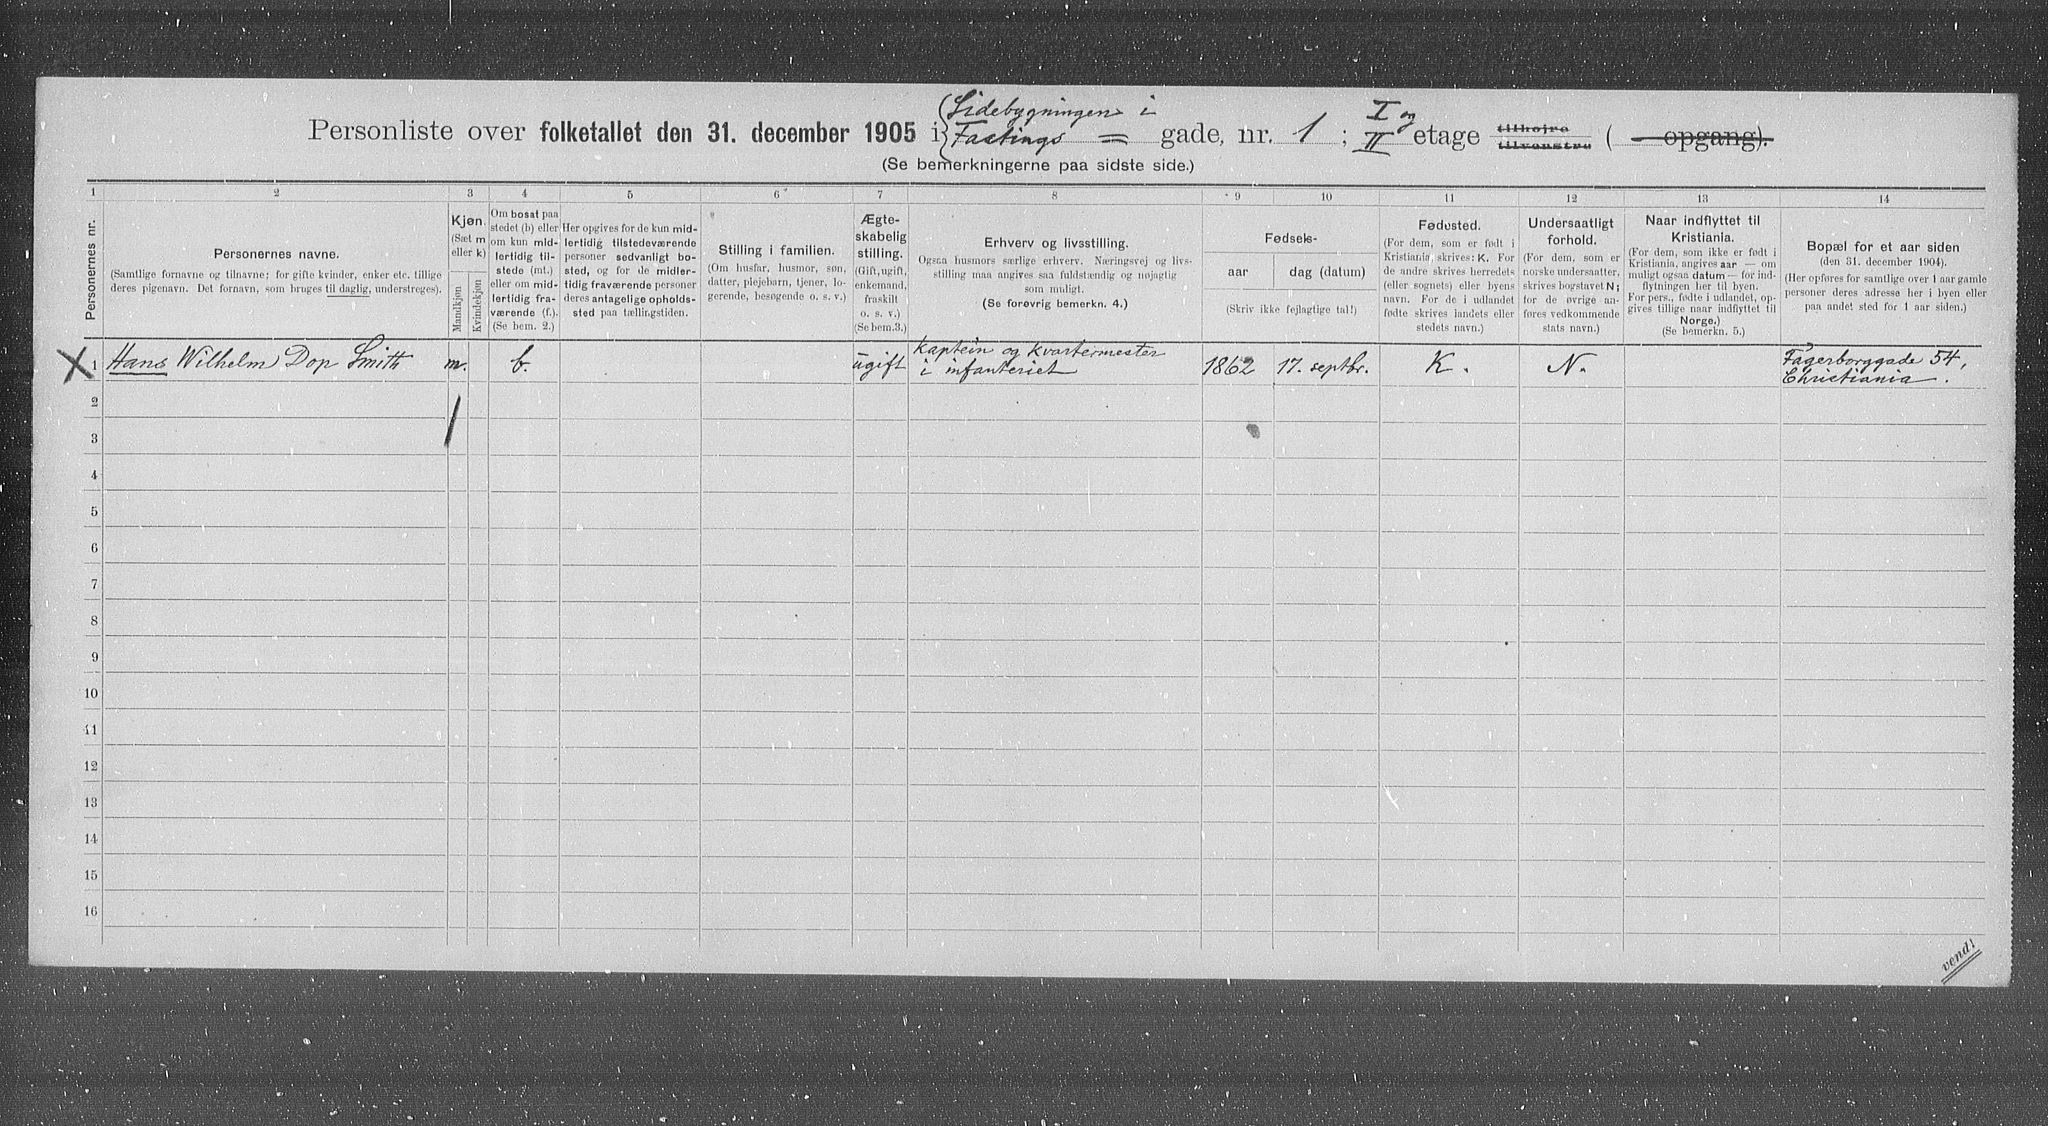 Personliste over folketallet den 31. december 1905 i { Sidebygningen i Fastings = gade, nr. 1 ; I og II etage tilhøjre tilvenstre ( — opgang).
(Se bemerkningerne paa sidste side.)
1 2 3 4 5 6 7 8 9 10 11 12 13 14
Personernes nr.
Personernes navne.
(Samtlige fornavne og tilnavne; for gifte kvinder, enker etc. tillige
deres pigenavn. Det fornavn, som bruges til daglig, understreges).
Kjøn.
(Sæt m
eller k)
Mandkjøn
Kvindekjøn
Om bosat paa
stedet (b) eller
om kun mid-
lertidig til-
stede (mt.)
eller om mid-
lertidig fra-
værende (f.).
(Se bem. 2.)
Her opgives for de kun mid-
lertidig tilstedeværende
personer sedvanligt bo-
sted, og for de midler-
tidig fraværende personer
deres antagelige opholds-
sted paa tællingstiden.
Stilling i familien.
(Om husfar, husmor, søn,
datter, plejebarn, tjener, lo-
gerende, besøgende o. s. v.)
Ægte-
skabelig
stilling.
(Gift, ugift,
enkemand,
fraskilt
o. s. v.)
(Se bem. 3.)
Erhverv og livsstilling.
Ogsaa husmors særlige erhverv. Næringsvej og livs-
stilling maa angives saa fuldstændig og nøjagtig
som muligt.
(Se forøvrig bemerkn. 4.)
Fødsels-
aar
dag (datum)
(Skriv ikke fejlagtige tal!)
Fødested.
(For dem, som er født i
Kristiania, skrives: K. For
de andre skrives herredets
(eller sognets) eller byens
navn. For de i udlandet
fødte skrives landets eller
stedets navn.)
Undersaatligt
forhold.
(For dem, som er
norske undersaatter,
skrives bogstavet N;
for de øvrige an-
føres vedkommende
stats navn.)
Naar indflyttet til
Kristiania.
(For dem, som ikke er født i
Kristiania, angives aar — om
muligt ogsaa datum — for ind-
flytningen her til byen.
For pers., fødte i udlandet, op-
gives tillige naar indflyttet til
Norge.)
(Se bemerkn. 5.)
Bopæl for et aar siden
(den 31. december 1904).
(Her opføres for samtlige over 1 aar gamle
personer deres adresse her i byen eller
paa andet sted for 1 aar siden.)
X 1 Hans Wilhelm Dop Smith m. b. ugift Kaptein og kvartermester i infanteriet 1862 17. septbr. K. N. Fagerborggade 54, Christiania.
2
3
4
5
6
7
8
9
10
11
12
13
14
15
16
vend!